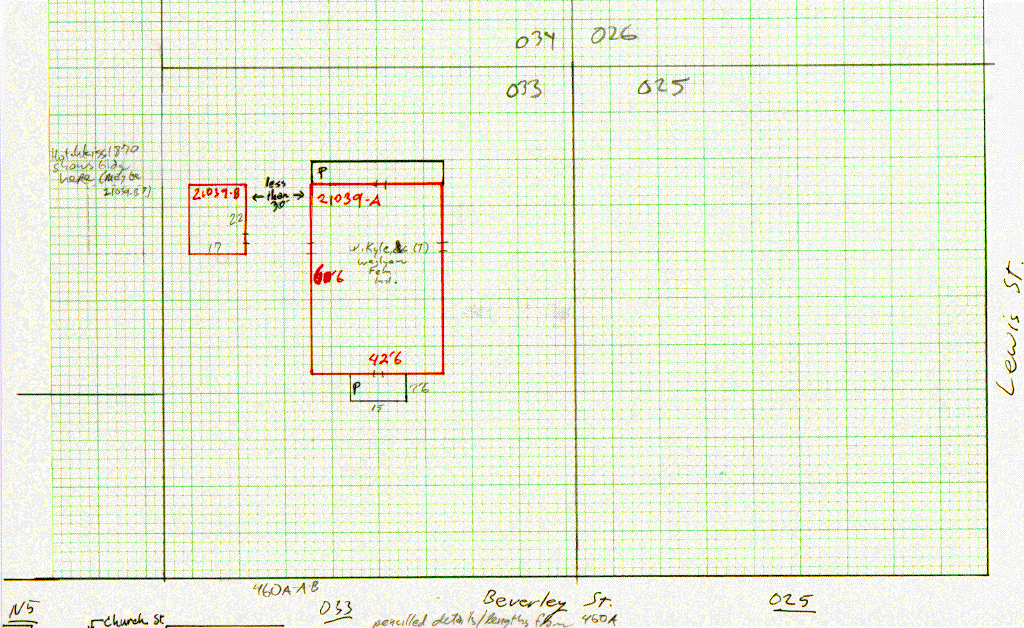 034 026
033 025
Hotchkiss 1870
shows bldg
here (maybe
21039-B?)
P
21039-B
less
than
30'
21039-A
22
17
W. Kyle, &c (T)
Wesleyan
Fem
Ind.
60'6
42'6
P
7'6
15
Lewis St.
460A-A-B
NS
Church St
033
Beverley St.
025
pencilled details/lengths from 460A